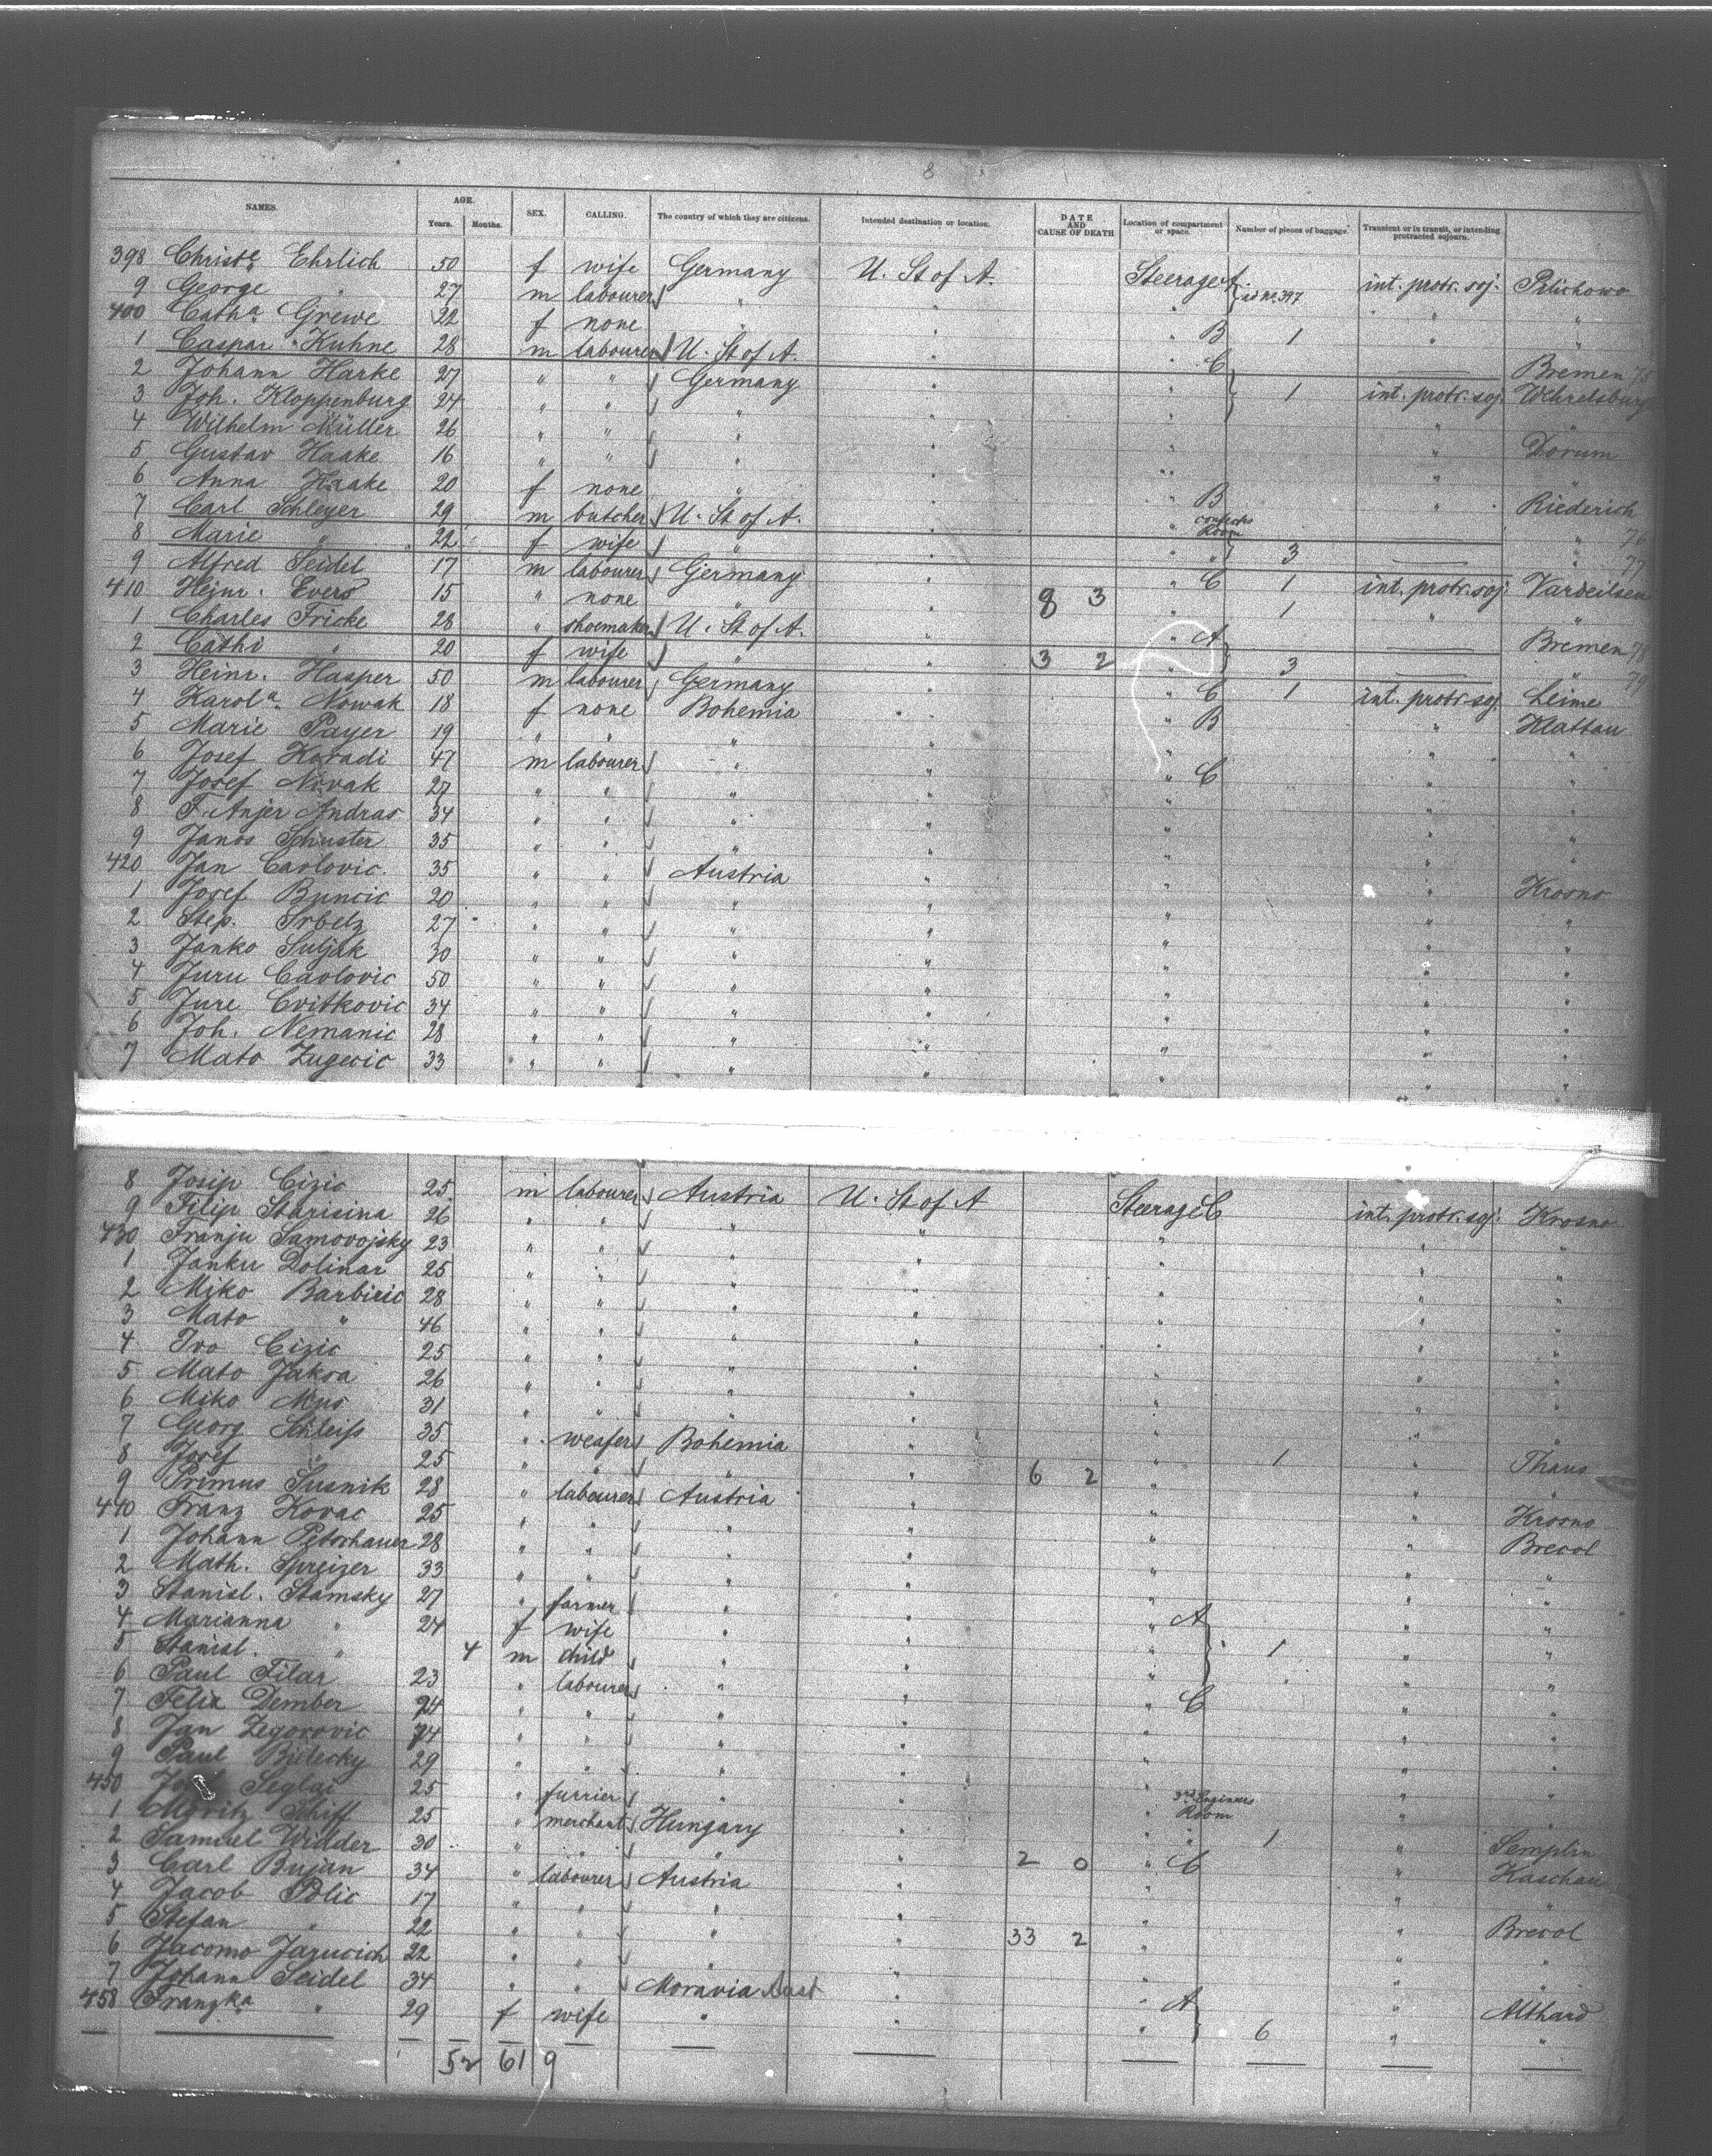 8
NAMES. AGE. Years. Months. SEX. CALLING. The country of which they are citizens. Intended destination or location. DATE AND CAUSE OF DEATH Location of compartment or space. Number of pieces of baggage. Transient or in transit, or intending protracted sojourn.
398 Christe Ehrlich 50 f wife Germany U. St of A. Steerage A. int. protr. soj.
9 George " 27 m labourer " " ad No. 397 " "
400 Catha Grewe 22 f none " " " B 1 " "
1 Caspar Kuhne 28 m labourer U. St of A. " " C Bremen 75
2 Johann Harke 27 " " Germany " " 1 int. protr. soj.
3 Joh. Kloppenburg 24 " " " " " " "
4 Wilhelm Müller 26 " " " " " " Dorum
5 Gustav Haake 16 " " " " " " "
6 Anna Haake 20 f none " " " B " Riederich
7 Carl Schleyer 29 m butcher U. St of A. " " Room " 76
8 Marie " 22 f wife " " " 3 " 77
9 Alfred Seidel 17 m labourer Germany " " C 1 int. protr. soj. Vardeilsen
410 Heinr. Evers 15 " none " " 8 3 " 1 " "
1 Charles Fricke 28 " shoemaker U. St of A. " " A Bremen 78
2 Cathi " 20 f wife " " 3 2 " 3 " 79
3 Heinr. Hasper 50 m labourer Germany " " C 1 int. protr. soj. Leime
4 Karola Nowak 18 f none Bohemia " " B " Klattau
5 Marie Payer 19 " " " " " " "
6 Josef Koradi 47 m labourer " " " C " "
7 Josef Novak 27 " " " " " " "
8 F. Anjer Andras 34 " " " " " " "
9 Janos Schuster 35 " " " " " " "
420 Jan Caolovic 35 " " Austria " " " Krosno
1 Josef Buncic 20 " " " " " " "
2 Step. Srbelz 27 " " " " " " "
3 Janko Suljak 30 " " " " " " "
4 Juru Caolovic 50 " " " " " " "
5 Jure Cvitkovic 34 " " " " " " "
6 Joh. Nemanic 28 " " " " " " "
7 Mato Zugecic 33 " " " " " " "
8 Josip Cizic 25 m labourer Austria U. St of A Steerage C int. protr. soj. Krosno
9 Filip Starisina 26 " " " " " " "
430 Franju Samovojsky 23 " " " " " " "
1 Janku Dolinar 25 " " " " " " "
2 Miko Barbiric 28 " " " " " " "
3 Mato " 46 " " " " " " "
4 Ivo Cizic 25 " " " " " " "
5 Mato Jaksa 26 " " " " " " "
6 Miko Mus 31 " " " " " " "
7 Georg Schleiss 35 " weafer Bohemia " " 1 " Thaus
8 Josef " 25 " " " " 6 2 " " "
9 Primus Susnik 28 " labourer Austria " " " Krosno
440 Franz Kovac 25 " " " " " " Brecol
1 Johann Petschauer 28 " " " " " " "
2 Math. Spreizer 33 " " " " " " "
3 Stanisl. Stamsky 27 " farmer " " " A " "
4 Marianna " 24 f wife " " " 1 " "
5 Stanisl. " 4 m child " " " " "
6 Paul Filar 23 " labourer " " " C " "
7 Felix Dember 24 " " " " " " "
8 Jan Zegorovic 24 " " " " " " "
9 Paul Bielecky 29 " " " " " " "
450 Seglai 25 " furrier " " 3rd Engineers Room " "
1 Moritz Schiff 25 " merchant Hungary " " 1 " Semplin
2 Samuel Widder 30 " " " " 2 0 " C " Kaschau
3 Carl Bujan 34 " labourer Austria " " " "
4 Jacob Polic 17 " " " " " " Brecol
5 Stefan " 22 " " " " 33 2 " " "
6 Jacomo Jarucich 22 " " " " " " "
7 Johann Seidel 34 " " Moravia Aust " " A " Althard
458 Franzka " 29 f wife " " " 6 " "
52 61 9